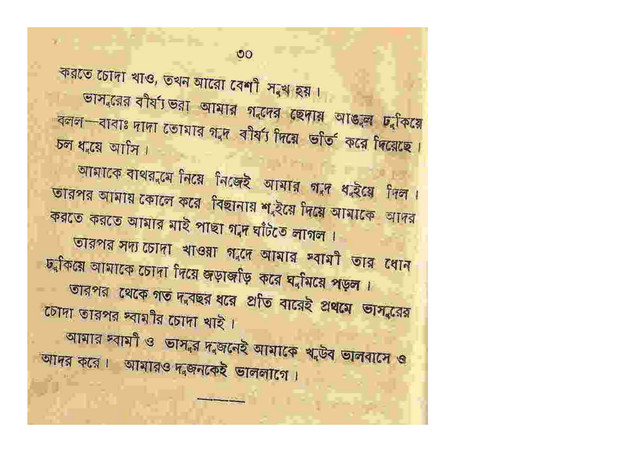 ৩০
করতে চোদা খাও, তখন আরো বেশী সুখ হয়।
ভাসুরের বীর্য্য ভরা আমার গুদের ছেদায় আঙ্গুল ঢুকিয়ে
বলল—বাবাঃ দাদা তোমার গুদ বীর্য্য দিয়ে ভর্তি করে দিয়েছে।
চল ধুয়ে আসি।
আমাকে বাথরুমে নিয়ে নিজেই আমার গুদ ধুইয়ে দিল।
তারপর আমায় কোলে করে বিছানায় শুইয়ে দিয়ে আমাকে আদর
করতে করতে আমার মাই পাছা গুদ ঘাঁটতে লাগল।
তারপর সদ্য চোদা খাওয়া গুদে আমার স্বামী তার ধোন
ঢুকিয়ে আমাকে চোদা দিয়ে জড়াজড়ি করে ঘুমিয়ে পড়ল।
তারপর থেকে গত দুবছর ধরে প্রতি বারেই প্রথমে ভাসুরের
চোদা তারপর স্বামীর চোদা খাই।
আমার স্বামী ও ভাসুর দুজনেই আমাকে খুউব ভালবাসে ও
আদর করে। আমারও দুজনকেই ভাললাগে।